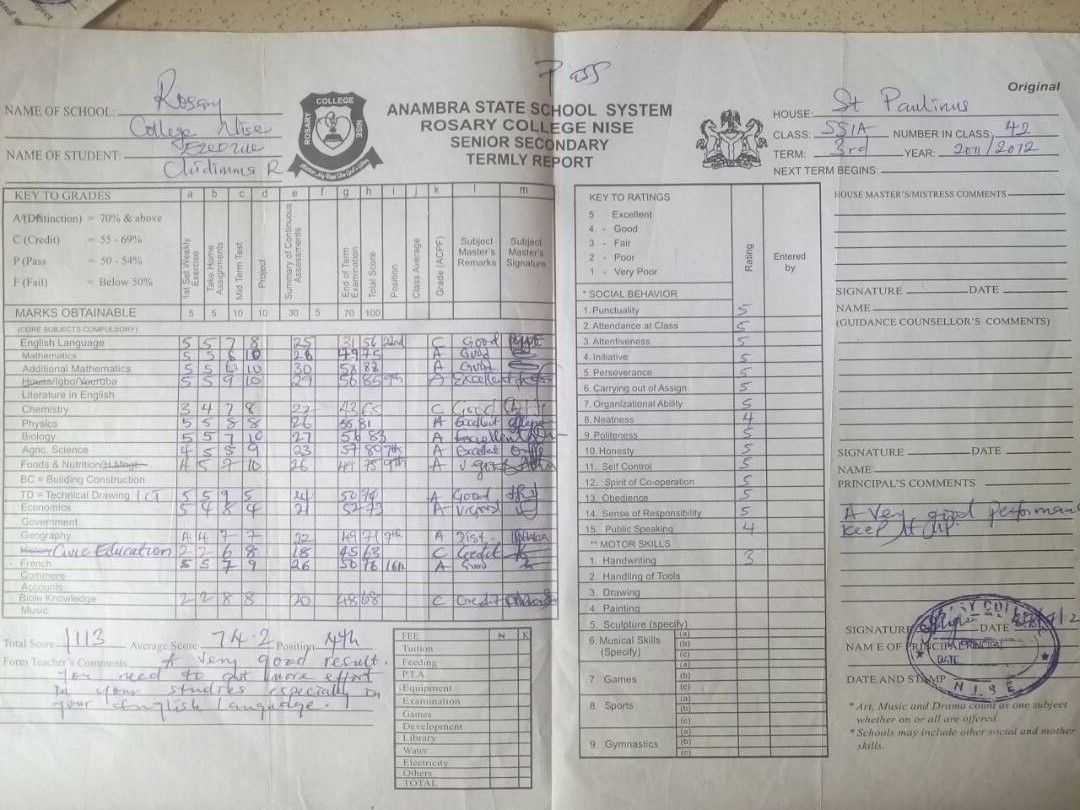 Pass
Original
NAME OF SCHOOL: Rosary
College Nise
NAME OF STUDENT: Ezeorue
Chidimma R
ROSARY COLLEGE NISE
ANAMBRA STATE SCHOOL SYSTEM
ROSARY COLLEGE NISE
SENIOR SECONDARY
TERMLY REPORT
HOUSE: St Paulinus
CLASS: SS1A NUMBER IN CLASS: 42
TERM: 3rd YEAR: 2011/2012
NEXT TERM BEGINS:
KEY TO GRADES a b c d e f g h i j k l m
A (Distinction) = 70% & above
C (Credit) = 55 - 69%
P (Pass = 50 - 54%
F (Fail) = Below 50%
1st Set Weekly Exercise
Take Home Assignments
Mid Term Test
Project
Summary of Continuous Assessments
End of Term Examination
Total Score
Position
Class Average
Grade (ACPF)
Subject Master's Remarks
Subject Master's Signature
MARKS OBTAINABLE 5 5 10 10 30 5 70 100
(CORE SUBJECTS COMPULSORY)
English Language 5 5 7 8 25 31 56 22nd C Good
Mathematics 5 5 6 10 26 49 75 A Good
Additional Mathematics 5 5 10 30 58 88 A Good
Hausa/Igbo/Yourouba 5 5 9 10 29 56 85 9th A Excellent
Literature in English
Chemistry 3 4 7 8 22 43 65 C Good
Physics 5 5 8 8 26 55 81 A Excellent
Biology 5 5 7 10 27 56 83 A Excellent
Agric. Science 4 5 5 9 23 57 80 7th A Excellent
Foods & Nutrition/H.Mngt 4 5 7 10 26 49 75 9th A V good
BC = Building Construction
TD = Technical Drawing ICT 5 5 9 5 24 50 74 A Good
Economics 5 4 8 4 21 52 73 A V.good
Government
Geography 4 4 7 7 22 49 71 7th A Dist.
History Civic Education 2 2 6 8 18 45 63 C Credit
French 5 5 7 9 26 50 76 16th A Good
Commerc
Accounts
Bible Knowledge 2 2 8 8 20 48 68 C Credit
Music
Total Score 1113 Average Score 74.2 Position 4th
Form Teacher's Comments A very good result.
You need to put more effort
in your studies especially in
your English language.
FEE N K
Tuition
Feeding
P.T.A.
Equipment
Examination
Games
Development
Library
Water
Electricity
Others
TOTAL
KEY TO RATINGS Rating Entered by
5 Excellent
4. - Good
3 - Fair
2 - Poor
1 - Very Poor
* SOCIAL BEHAVIOR
1. Punctuality 5
2. Attendance at Class 5
3. Attentiveness 5
4. Initiative 5
5. Perseverance 5
6. Carrying out of Assign 5
7. Organizational Ability 5
8. Neatness 4
9. Politeness 5
10. Honesty 5
11. Self Control 5
12. Spirit of Co-operation 5
13. Obedience 5
14. Sense of Responsibility 5
15. Public Speaking 4
** MOTOR SKILLS
1. Handwriting 3
2. Handling of Tools
3. Drawing
4. Painting
5. Sculpture (specify)
6. Musical Skills (Specify) (a) (b) (c)
7. Games (a) (b) (c)
8. Sports (a) (b) (c)
9. Gymnastics (a) (b) (c)
HOUSE MASTER'S/MISTRESS COMMENTS
SIGNATURE DATE
NAME
(GUIDANCE COUNSELLOR'S COMMENTS)
SIGNATURE DATE
NAME
PRINCIPAL'S COMMENTS
A very good performance
keep it up.
SIGNATURE DATE
NAME OF PRINCIPAL
DATE AND STAMP
PRINCIPAL
DATE
NISE
* Art, Music and Drama count as one subject
whether on or all are offered.
* Schools may include other social and mother
skills.